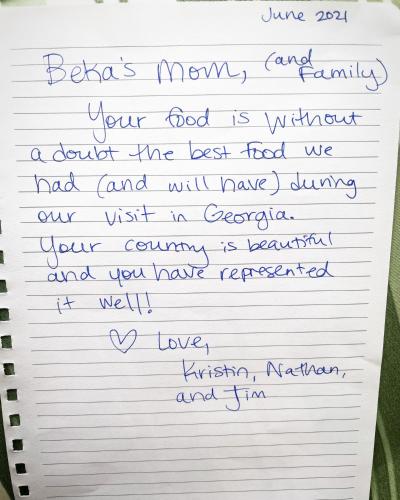 June 2021
Beka's Mom, (and Family)
Your food is without
a doubt the best food we
had (and will have) during
our visit in Georgia.
Your country is beautiful
and you have represented
it well!
♡ Love,
Kristin, Nathan,
and Jim